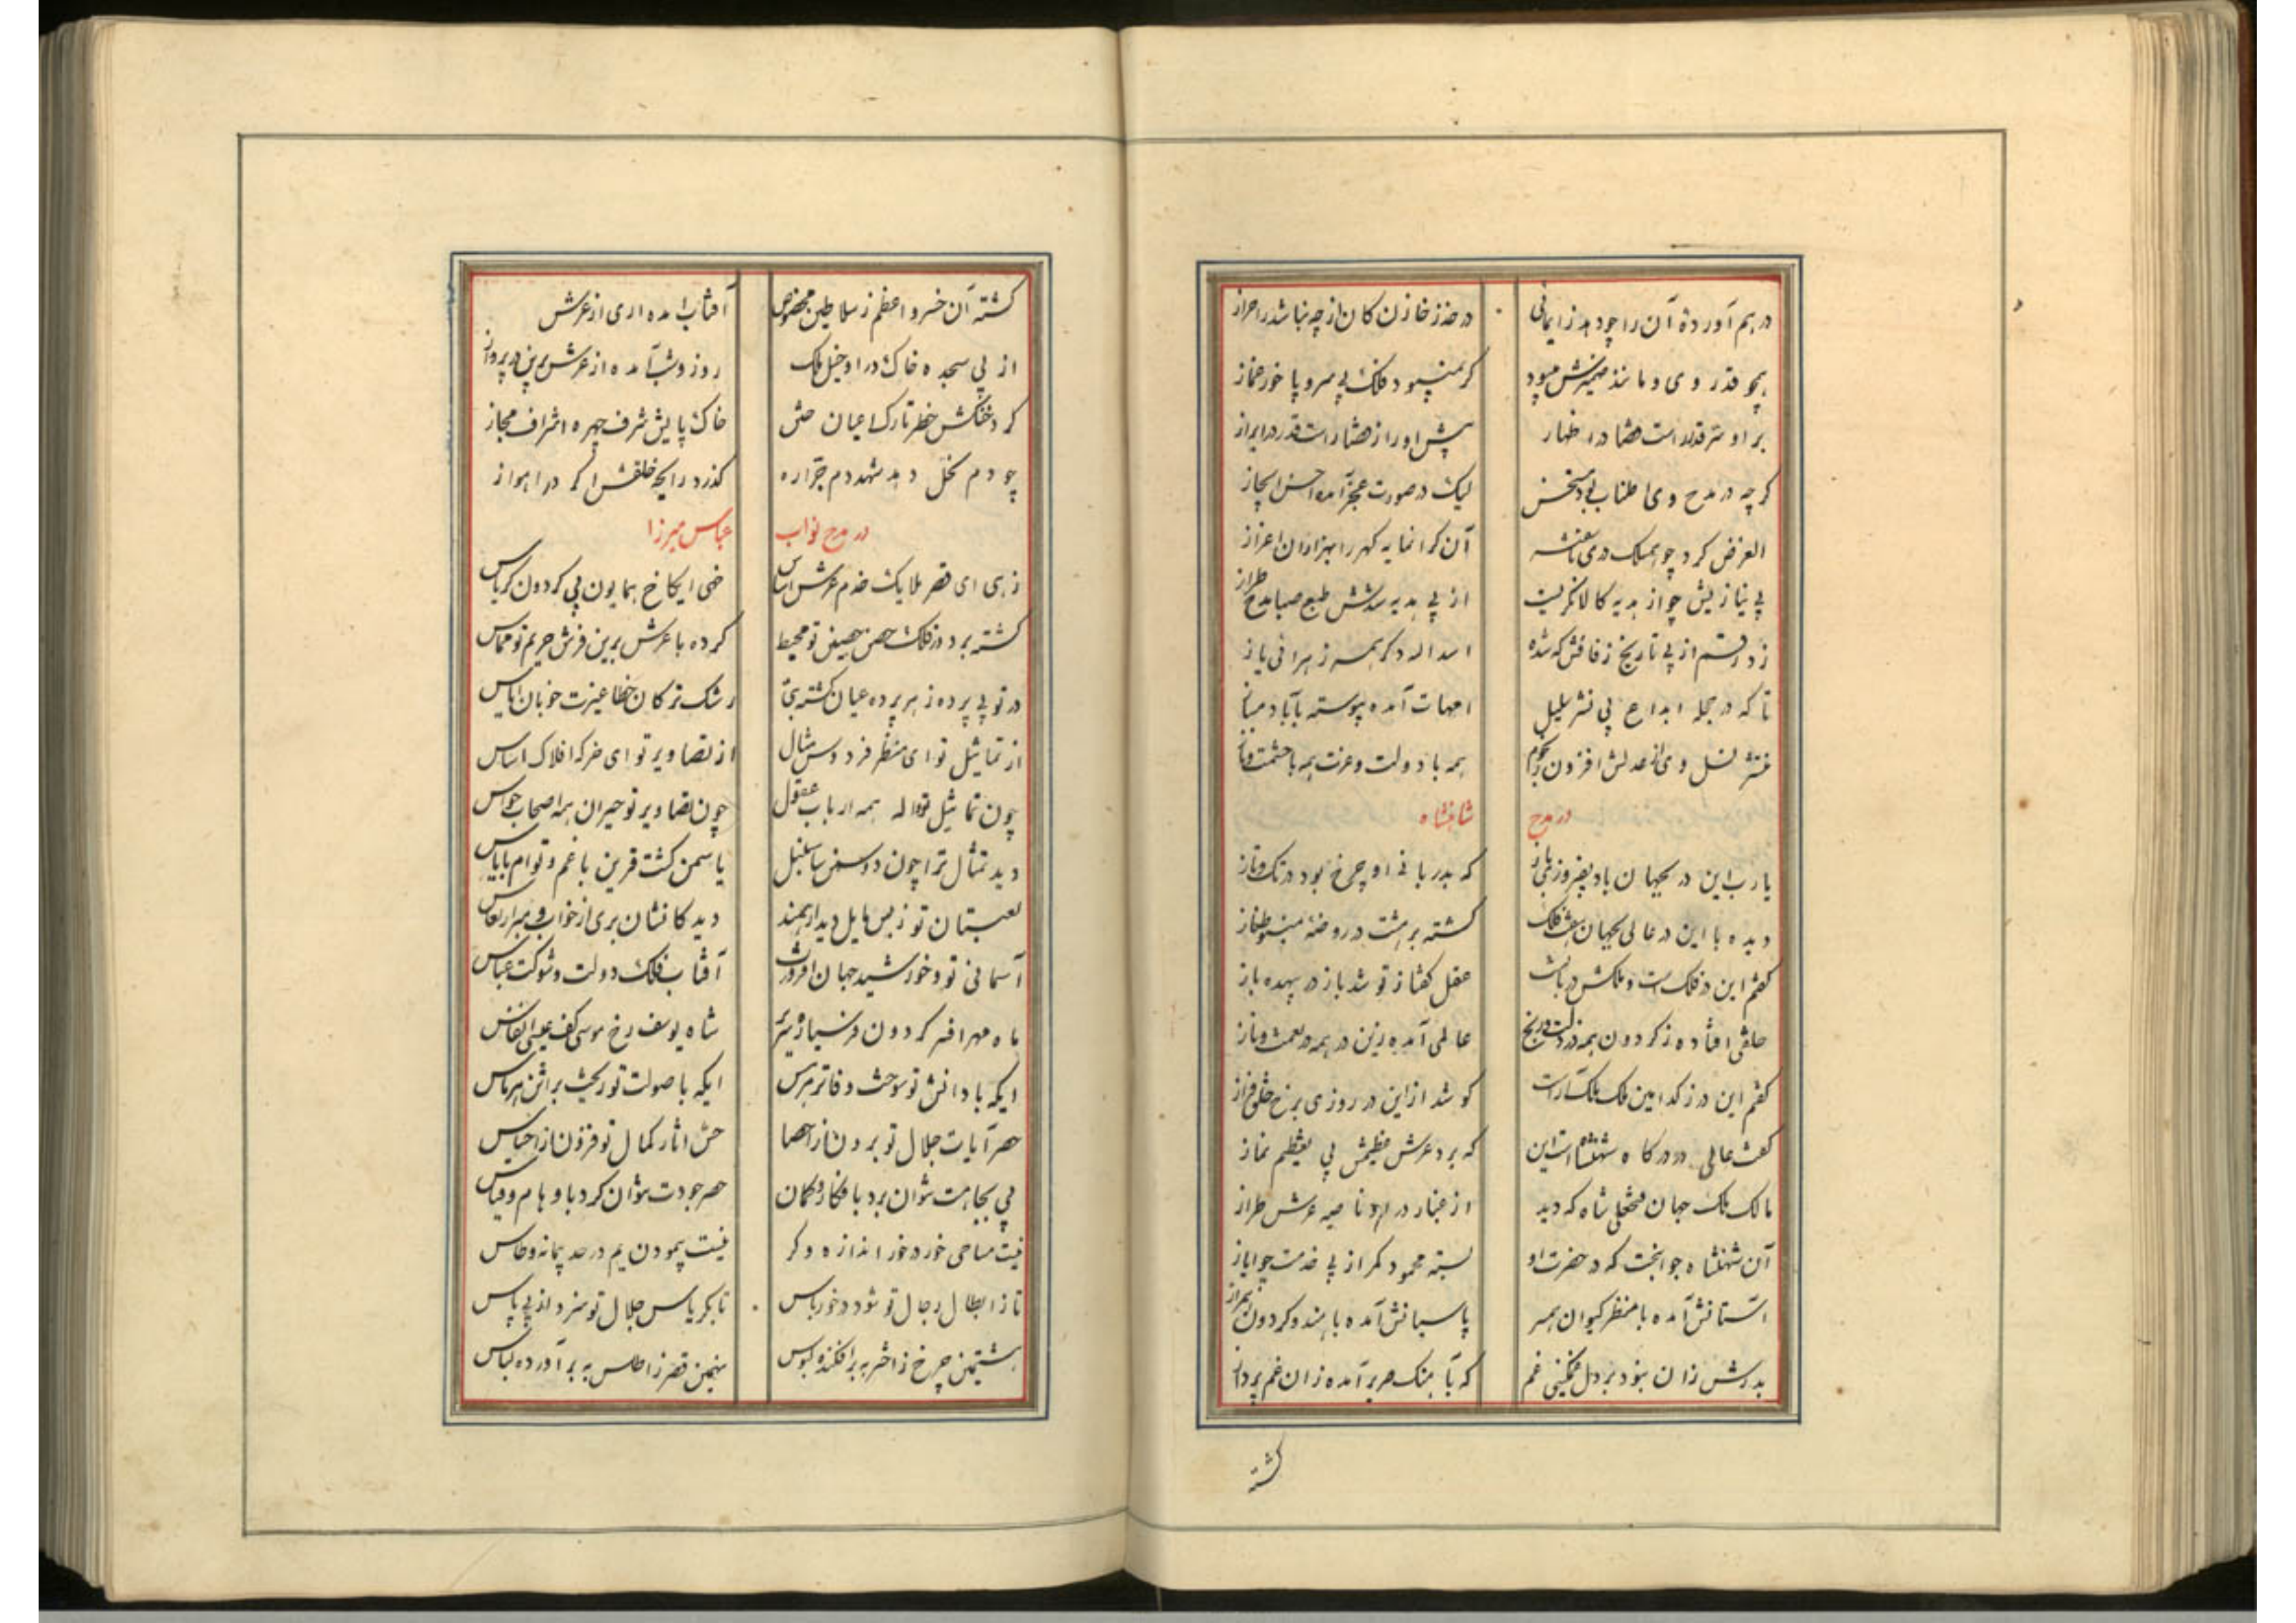 در هم آورده آن را چو دهد زایمانی
در حذر خازن کان از چه نباشد ز احراز
همچو قدر وی و مانند ضمیرش میبود
گر نمیبود فلک بی سر و پا خور غماز
بر او سر قدر است قضا در اظهار
پیش او راز قضا راست قدر در ابراز
گرچه در مدح وی اطناب بود مستحسن
لیک در صورت عجز آمده احسن ایجاز
الغرض کرد چو همسلک دری ناسفته
آن گرانمایه گهر را بهزاران اعزاز
پی نیازیش چو از هدیه کالا نگریست
از پی هدیه طبع صبا مدح طراز
زد رقم از پی تاریخ زفافش که شده
اسداله دگر همسر زهرائی باز
تا که در حجله ابداع پی نشر سلیل
امهات آمده پیوسته بآباء دمساز
نسل وی از عدلش افزون ز نجوم
همه با دولت و عزت همه با حشمت و ناز
در مدح شاهنشاه
یارب این در بجهان باد بفیروزی باز
که بدربانی او چرخ بود در تک و تاز
دیده تا این در عالی بجهان هشت فلک
گشته بر هشت در روضه مینو طناز
گفتم این در فلک است و ملکش دربانست
عقل گفتا ز تو شد باز در بیهده باز
خلقی افتاده ز گردون همه در ذلت و رنج
عالمی آمده زین در همه در نعمت و ناز
گفتم این در ز کدامین ملک ملک‌آراست
کو شد از این در روزی برخ خلق فراز
گفت عالی در درگاه شهنشاهست این
که برد عرش عظیمش پی تعظیم نماز
مالک ملک جهان فتحعلی شاه که دید
از غبار در او ناصیه عرش طراز
آن شهنشاه جوانبخت که در حضرت او
بسته محمود کمر از پی خدمت چو ایاز
آستانش آمده با منظر کیوان همسر
پاسبانش آمده با هندو گردون همراز
بدرش زان نبود بر دل غمگینی غم
که بآهنگ صریر آمده زان غم پرداز
گشته
گشته آن خسرو اعظم ز سلاطین مخصوص
آفتاب آمده اری از عرش
از پی سجده خاک در او خیل ملک
روز و شب آمده از عرش برین در پرواز
کرد خنکش خطر تارک اعیان
خاک پایش شرف چهره اشراف مجاز
چو دم نحل دهد شهد دم جراره
گذرد رایحه خلقش اگر در اهواز
در مدح نواب عباس میرزا
زهی ای قصر ملایک خدم عرش اساس
خهی ایکاخ همایون پی گردون کریاس
گشته بر دور فلک حصن حصین تو محیط
کرده با عرش برین فرش حریم تو مماس
در تو بی پرده ز هر پرده عیان گشته بتی
رشک ترکان خطا غیرت خوبان ایاس
از تماثیل تو ای منظر فردوس مثال
از تصاویر تو ای خرگه افلاک اساس
چون تماثیل تو واله همه ارباب عقول
چون تصاویر تو حیران همه اصحاب حواس
دید تمثال ترا چون دو سمن با سنبل
یا سمن گشت قرین با غم و توام با یاس
لعبتان تو ز بس مایل دیدار همند
دیدگانشان بری از خواب و مبرا ز نعاس
آسمانی تو و خورشید جهان افروزت
آفتاب فلک دولت و شوکت عباس
ماه مهر افسر گردون فر سیاره سریر
شاه یوسف رخ موسی کف عیسی انفاس
ایکه با دانش تو سوخت دفاتر هرمس
ایکه با صولت تو ریخت براثن هرماس
حصر آیات جلال تو برون از احصا
حسن آثار کمال تو فزون از احساس
پی بجاهت نتوان برد بافکار و گمان
حصر جودت نتوان کرد باوهام و قیاس
نیست مساحی خور در خور اندازه و گز
نیست پیمودن یم در حد پیمانه و طاس
تا ز ابطال رجال تو شود در خور باس
تا بکریاس جلال تو سزد از پی پاس
هشتمین چرخ ز اختر به برافکنده لبوس
نهمین قصر ز اطلس به بر آورده لباس